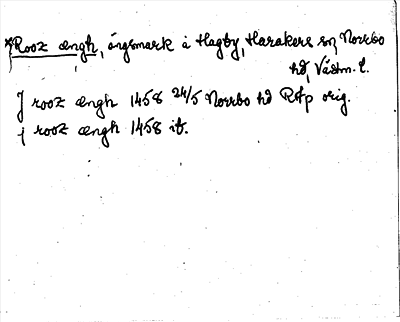 *Rooz ængh, ängsmark å Hagby, Harakers sn, Norrbo
hd, Västm. l.
J rooz ængh 1458 24/5 Norrbo hd RAp orig.
i rooz ængh 1458 ib.